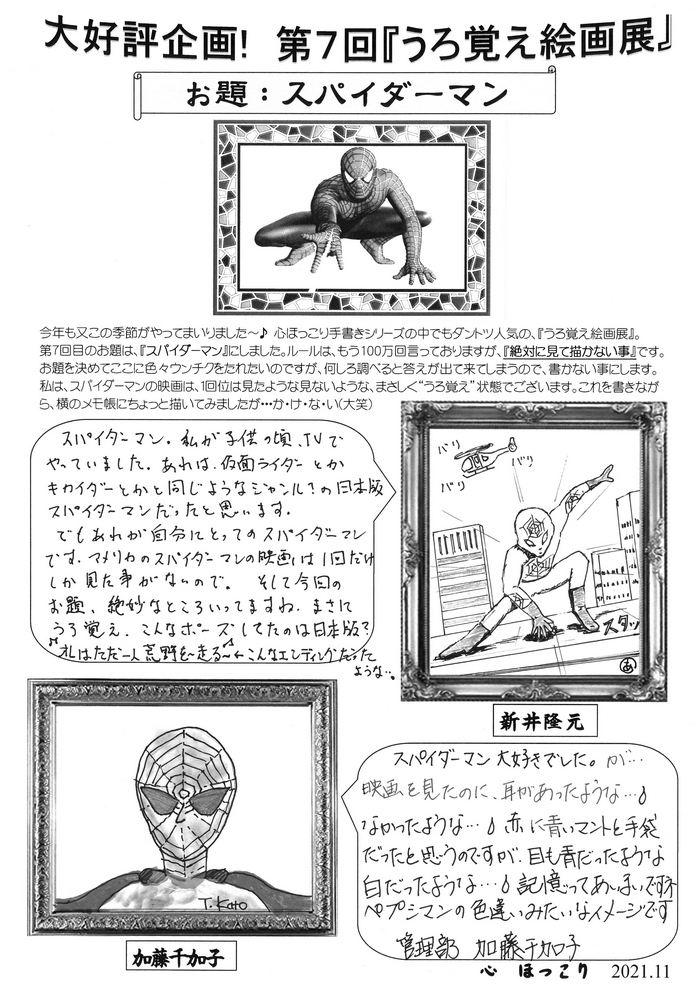 大好評企画! 第7回『うろ覚え絵画展』
お題：スパイダーマン
今年も又この季節がやってまいりました〜♪ 心ほっこり手書きシリーズの中でもダントツ人気の、『うろ覚え絵画展』。
第7回目のお題は、『スパイダーマン』にしました。ルールは、もう100万回言っておりますが、『絶対に見て描かない事』です。
お題を決めてここに色々ウンチクをたれたいのですが、何しろ調べると答えが出て来てしまうので、書かない事にします。
私は、スパイダーマンの映画は、1回位は見たような見ないような、まさしく“うろ覚え”状態でございます。これを書きなが
ら、横のメモ帳にちょっと描いてみましたが・・・か・け・な・い(大笑)
スパイダーマン、私が子供の頃、TVで
やっていました。あれは、仮面ライダーとか
キカイダーとかと同じようなジャンル？の日本版
スパイダーマンだったと思います。
でもあれが自分にとってのスパイダーマン
です。アメリカのスパイダーマンの映画は1回だけ
しか見た事がないので。 そして今回の
お題、絶妙なところいってますね。まさに
うろ覚え。こんなポーズしてたのは日本版？
♪オレはただ一人荒野を走る〜♪←こんなエンディングだった
ような・・。
バリ
バリ
バリ
スタッ
あ
新井隆元
T.Kato
加藤千加子
スパイダーマン大好きでした。が…
映画を見たのに、耳があったような…♪
なかったような…♪ 赤に青いマントと手袋
だったと思うのですが、目も青だったような
白だったような…♪ 記憶ってあいまいですネ
ペプシマンの色違いみたいなイメージです
管理部 加藤千加子
心 ほっこり 2021.11